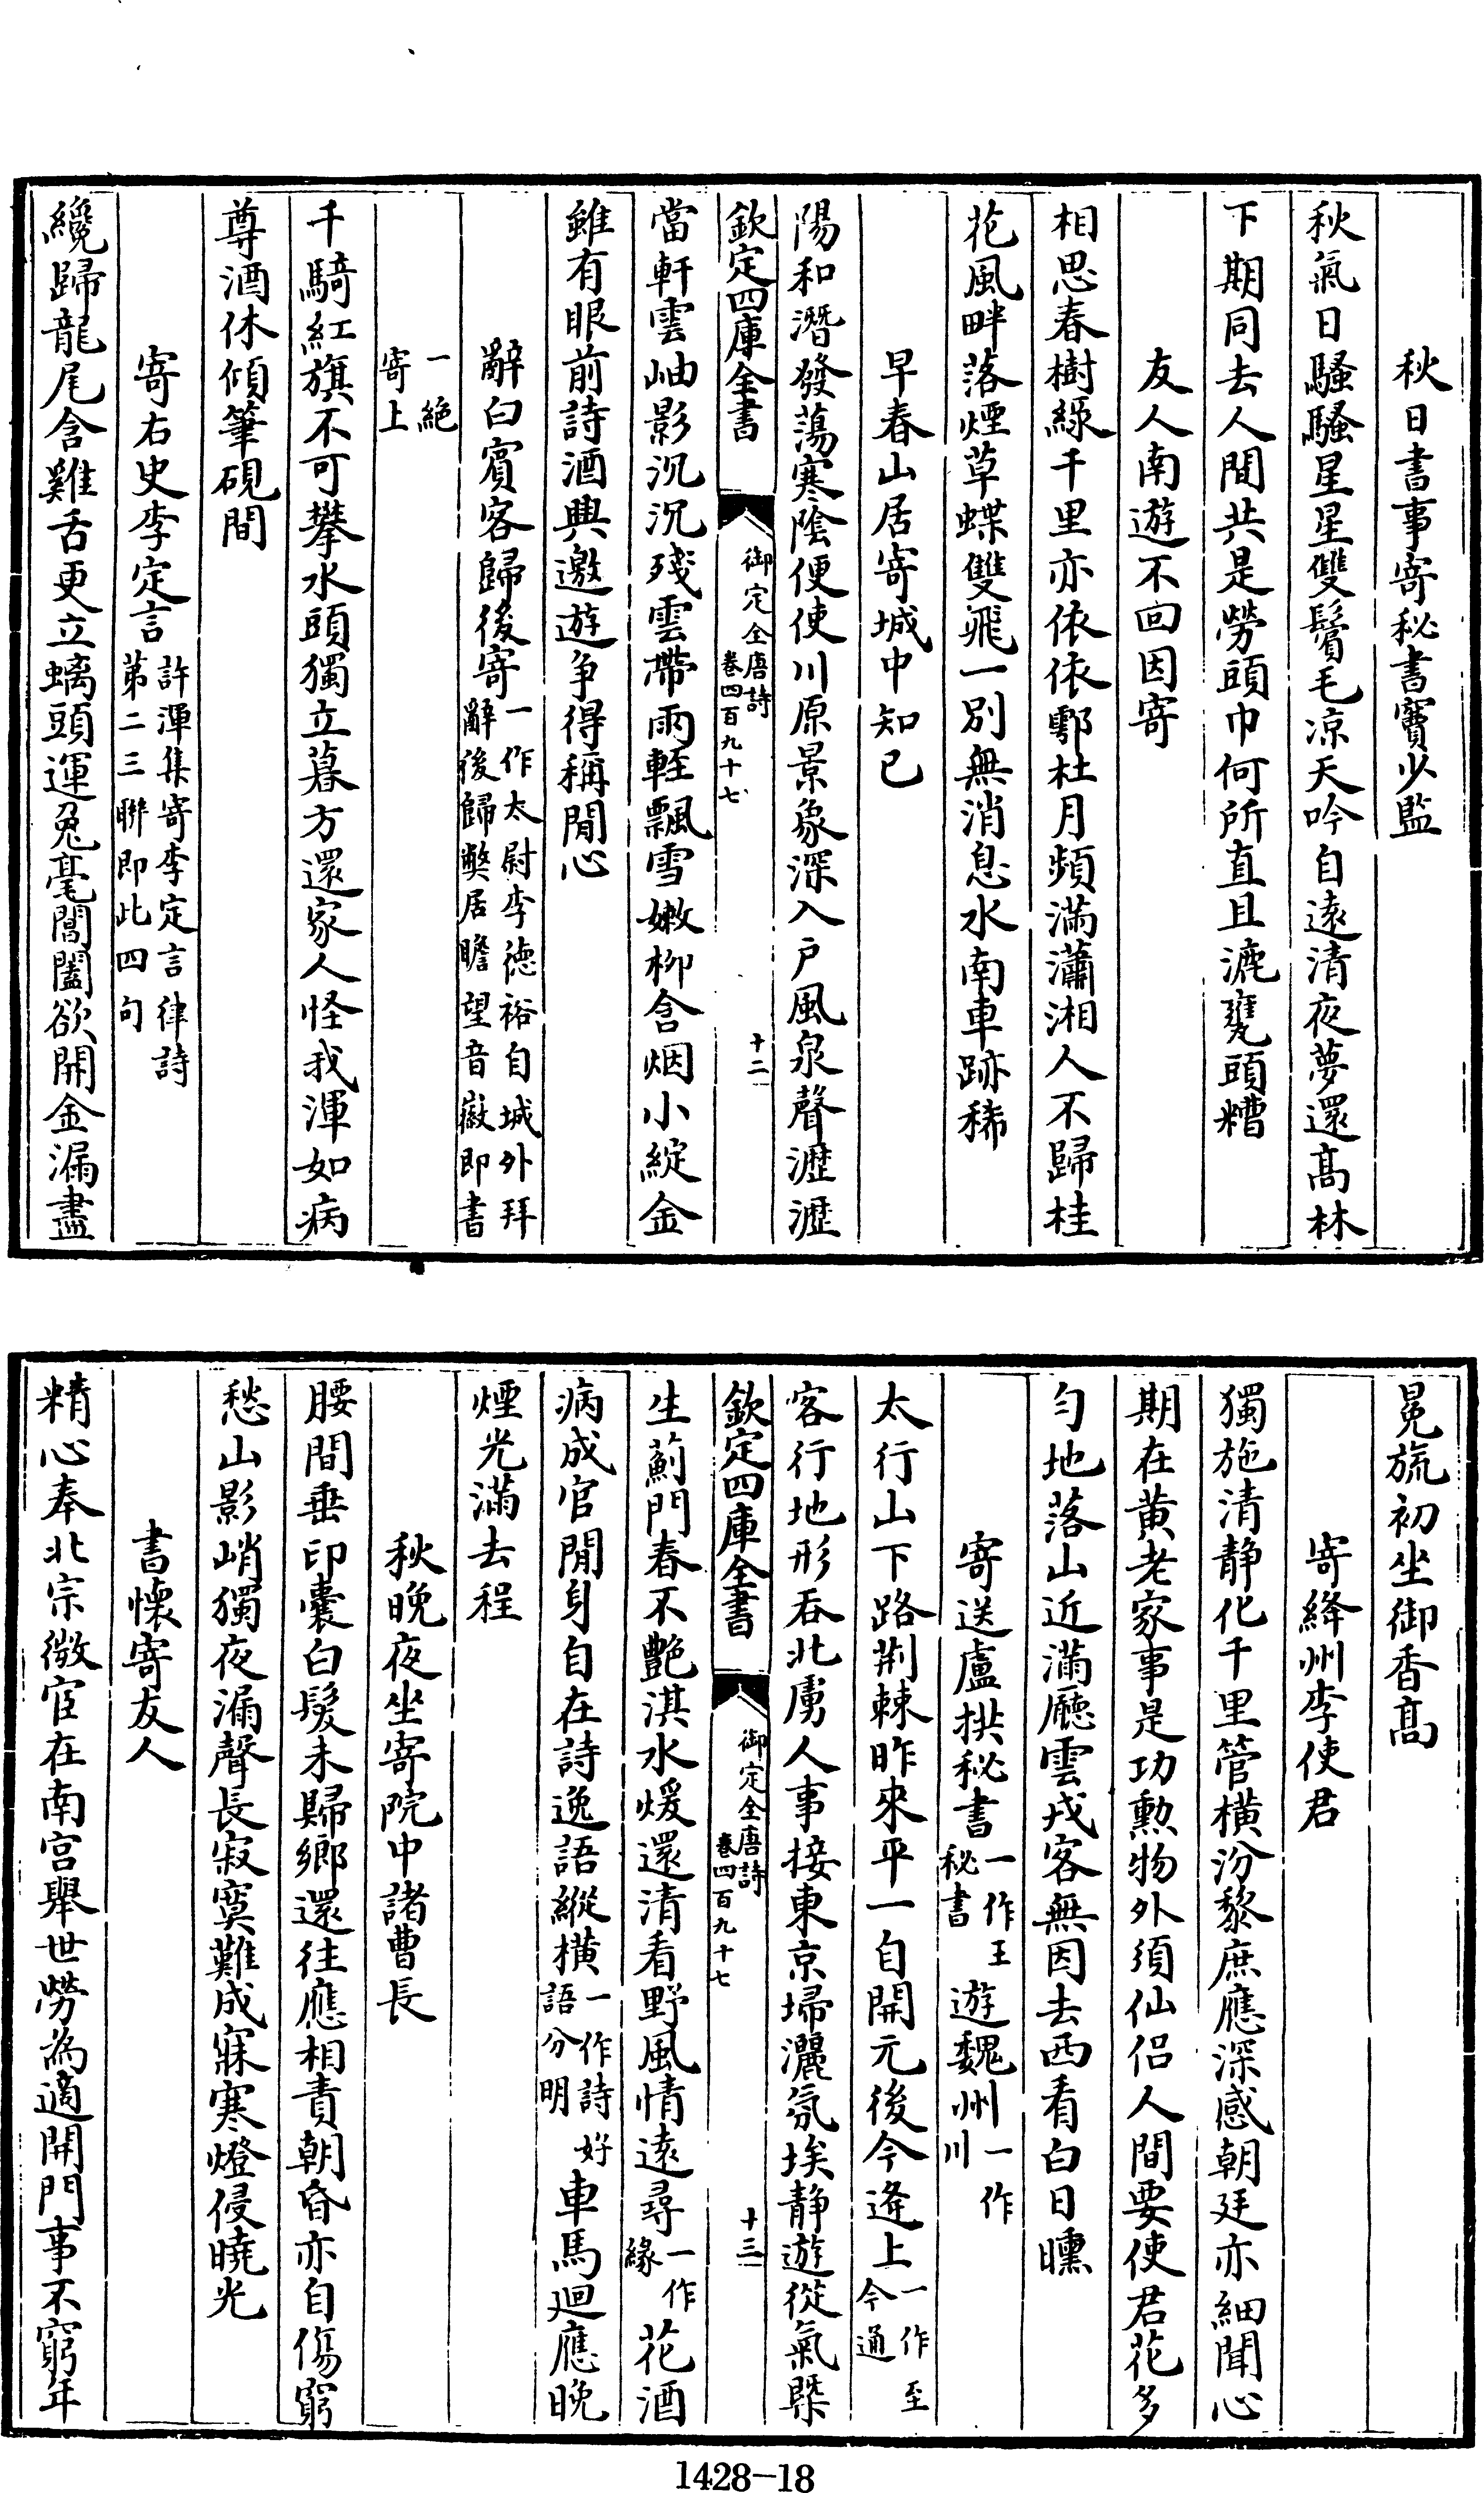 秋日書事寄秘書竇少監
秋氣日騷騷星星雙鬢毛凉天吟自遠清夜夢還髙林
下期同去人間共是勞頭巾何所直且漉甕頭糟
友人南遊不回因寄
相思春樹緑千里亦依依鄠杜月頻滿瀟湘人不歸桂
花風畔落煙草蝶雙飛一別無消息水南車跡稀
早春山居寄城中知已
陽和潛發蕩寒陰便使川原景象深入戶風泉聲瀝瀝
欽定四庫全書
御定全唐詩
卷四百九十七
十二
當軒雲岫影沉沉殘雲帶雨輕飄雪嫩栁含烟小綻金
雖有眼前詩酒興邀遊争得稱閒心
辭白賓客歸後寄一作太尉李徳裕自城外拜
辭後歸獘居瞻望音徽即書
一絶
寄上
千騎紅旗不可攀水頭獨立暮方還家人怪我渾如病
尊酒休傾筆硯間
寄右史李定言許渾集寄李定言律詩
第二三聯即此四句
纔歸龍尾含雞舌更立螭頭運兔毫閶闔欲開金漏盡
冕旒初坐御香髙
寄絳州李使君
獨施清静化千里管横汾黎庶應深感朝廷亦細聞心
期在黄老家事是功勲物外須仙侣人間要使君花多
匀地落山近滿廳雲戎客無因去西看白日曛
寄送盧拱秘書一作王
秘書遊魏州一作
川
太行山下路荆棘昨來平一自開元後今逄上一作至
今通
客行地形吞北虜人事接東京埽灑氛埃静遊從氣槩
欽定四庫全書
御定全唐詩
卷四百九十七
十三
生薊門春不艶淇水煖還清看野風情遠尋一作
緣花酒
病成官閒身自在詩逸語縱横一作詩好
語分明車馬迴應晚
煙光滿去程
秋晚夜坐寄院中諸曹長
腰間垂印囊白髮未歸鄉還往應相責朝昏亦自傷窮
愁山影峭獨夜漏聲長寂寞難成寐寒燈侵曉光
書懷寄友人
精心奉北宗微宦在南宫舉世勞為適開門事不窮年
1428-18